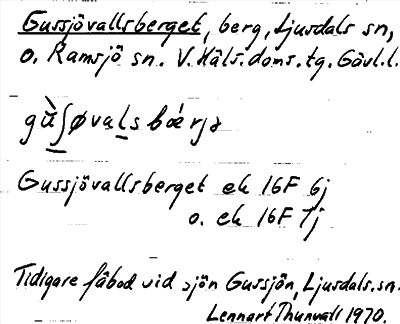 Gussjövallsberget, berg, Ljusdals sn,
o. Ramsjö sn. V. Häls. doms. tg. Gävl. l.
gùʃøvaḷs bærjə
Gussjövallsberget ek 16F 6j
o. ek 16F 7j
Tidigare fäbod vid sjön Gussjön, Ljusdals. sn.
Lennart Thunvall 1970.